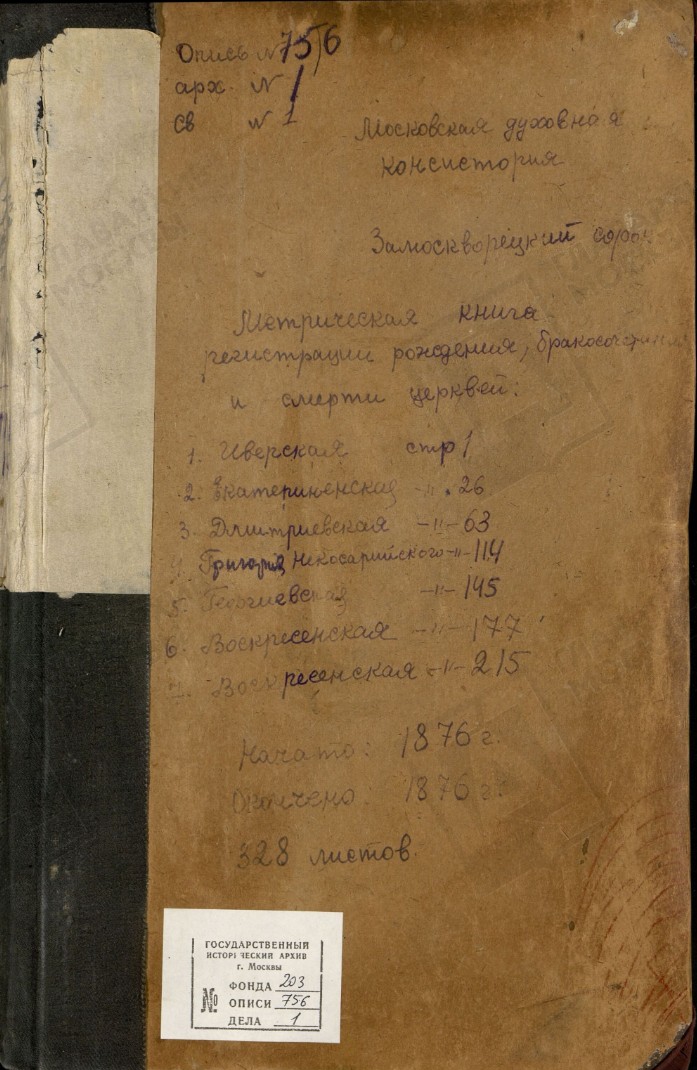 Опись № 756
арх. № 1
св № 1
Московская духовная
консистория
Замоскворецкий сорок
Метрическая книга
регистрации рождения, бракосочетания
и смерти церквей:
1. Иверская стр 1
2. Екатерененская -"- 26
3. Дмитриевская -"- 63
4. Григория Некосарийского -"- 114
5. Георгиевская -"- 145
6. Воскресенская -"- 177
7. Воскресенская -"- 215
Начато: 1876 г.
Окончено: 1876 г.
328 листов.
ГОСУДАРСТВЕННЫЙ
ИСТОРИЧЕСКИЙ АРХИВ
г. Москвы
№ ФОНДА 203
ОПИСИ 756
ДЕЛА 1